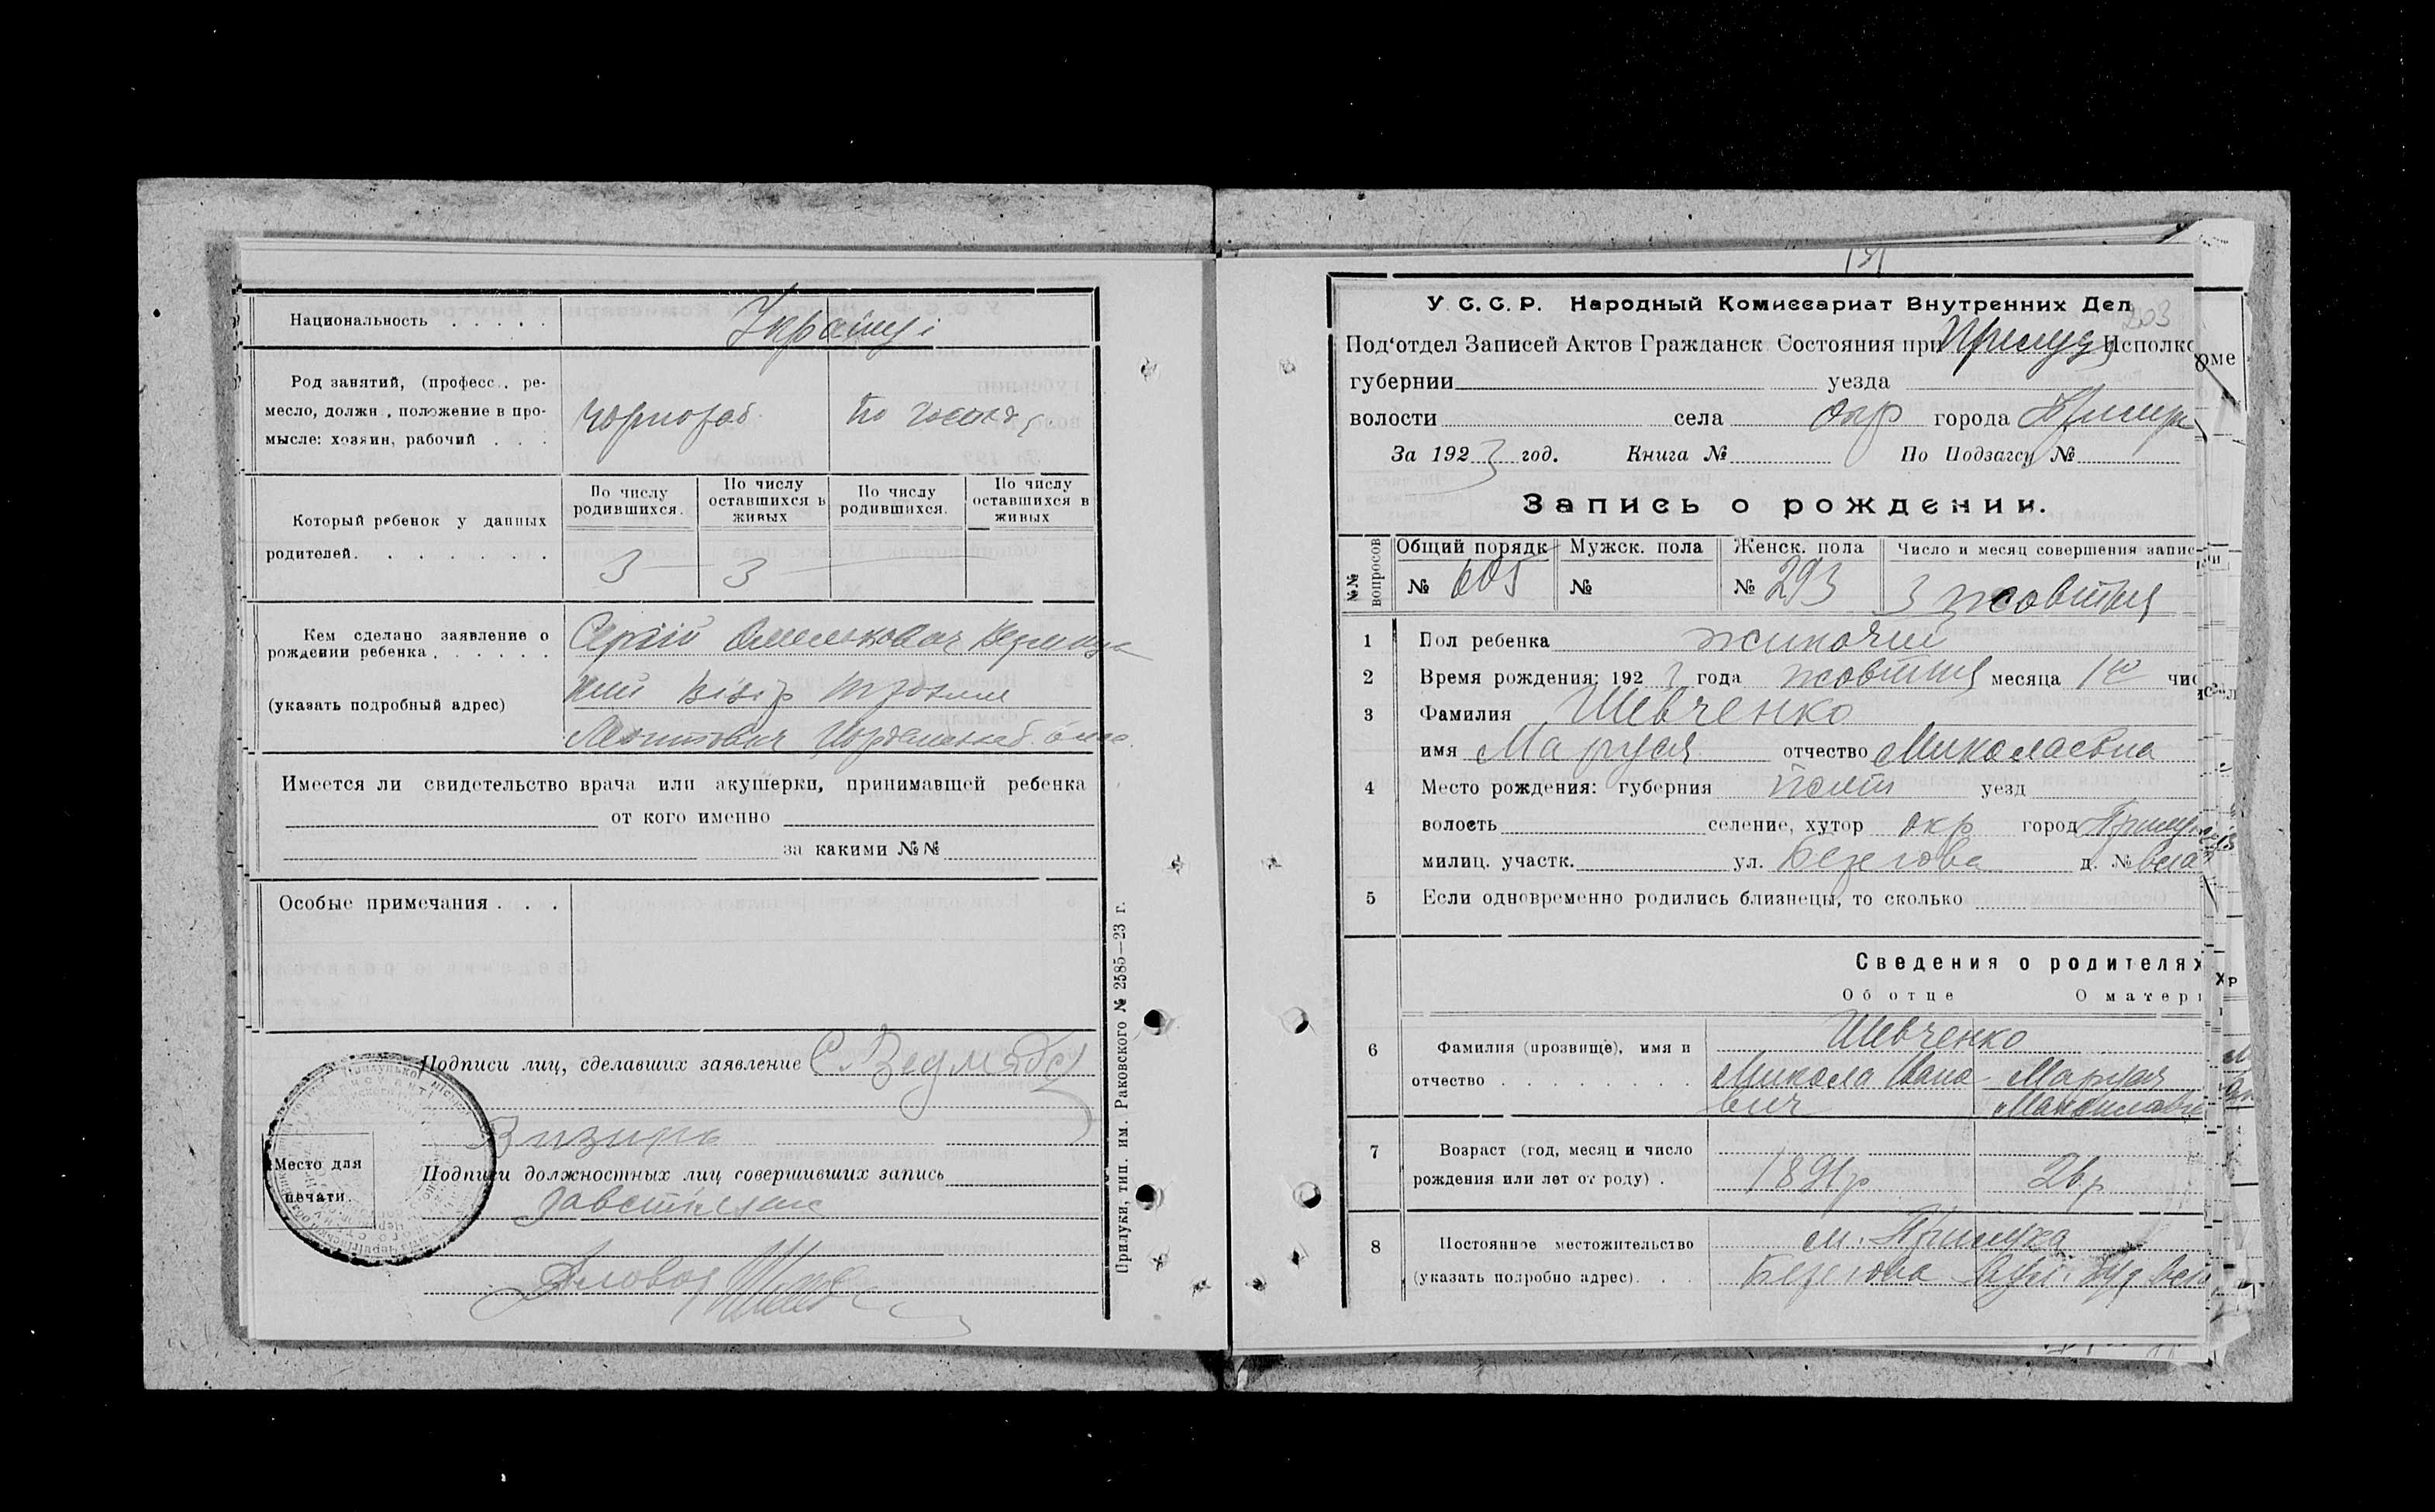 Национальность
Українці
Род занятий, (професс., ре-
месло, должн, положение в про-
мысле: хозяин, рабочий
чорнороб.
Который ребенок у данных
родителей
По числу родившихся.
По числу оставшихся в живых
По числу родившихся.
По числу оставшихся в живых
3 3
Кем сделано заявление о
рождении ребенка
(указать подробный адрес)
Сергій
Имеется ли свидетельство врача или акушерки, принимавшей ребенка
от кого именно
за какими №№
Особые примечания
Подписи лиц, сделавших заявление
Визирь
Подписи должностных лиц совершивших запись
Место для
печати.
Діловод
Прилуки, тип. им. Раковского № 2585—23 г.
131
203
У. С. С. Р. Народный Комиссариат Внутренних Дел
Под'отдел Записей Актов Гражданск. Состояния при Исполко
губернии уезда
волости села окр города
За 1923 год. Книга № По Подзагсу №
Запись о рождении.
№№ вопросов
Общий порядк Мужск. пола Женск. пола Число и месяц совершения запис
№ 605 № № 293 3 жовтня
1 Пол ребенка жиночий
2 Время рождения: 1923 года жовтня месяца 1го чис
3 Фамилия Шевченко
имя Маруся отчество Миколаевна
4 Место рождения: губерния Полт уезд
волость селение, хутор окр город
милиц. участк. ул. Берегова д. №
5 Если одновременно родились близнецы, то сколько
Сведения о родителях
Об отце О матери
6 Фамилия (прозвище), имя и
отчество
Шевченко
Микола Ивано- Маруся
вич
7 Возраст (год, месяц и число
рождения или лет от роду).
1891р 26 р
8 Постоянное местожительство
(указать подробно адрес).
м. Прилука
Берегова